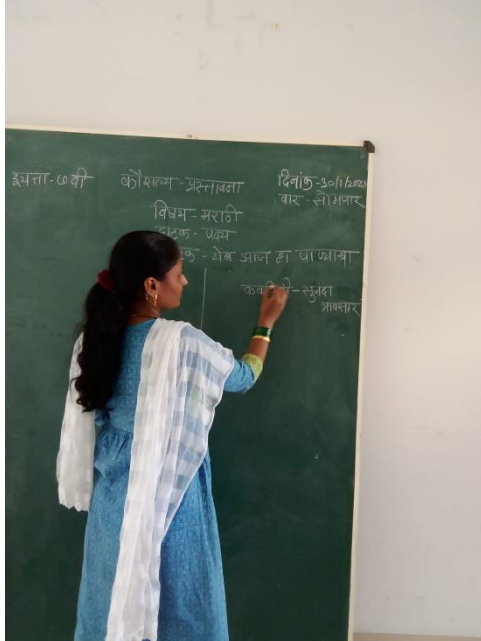 इयत्ता - ७वी कौशल्य - प्रस्तावना दिनांक - 30/1/2023
वार - सोमवार
विषय - मराठी
घटक - पद्य
थेंब आज हा पाण्याचा
सुनंदा
भावसार